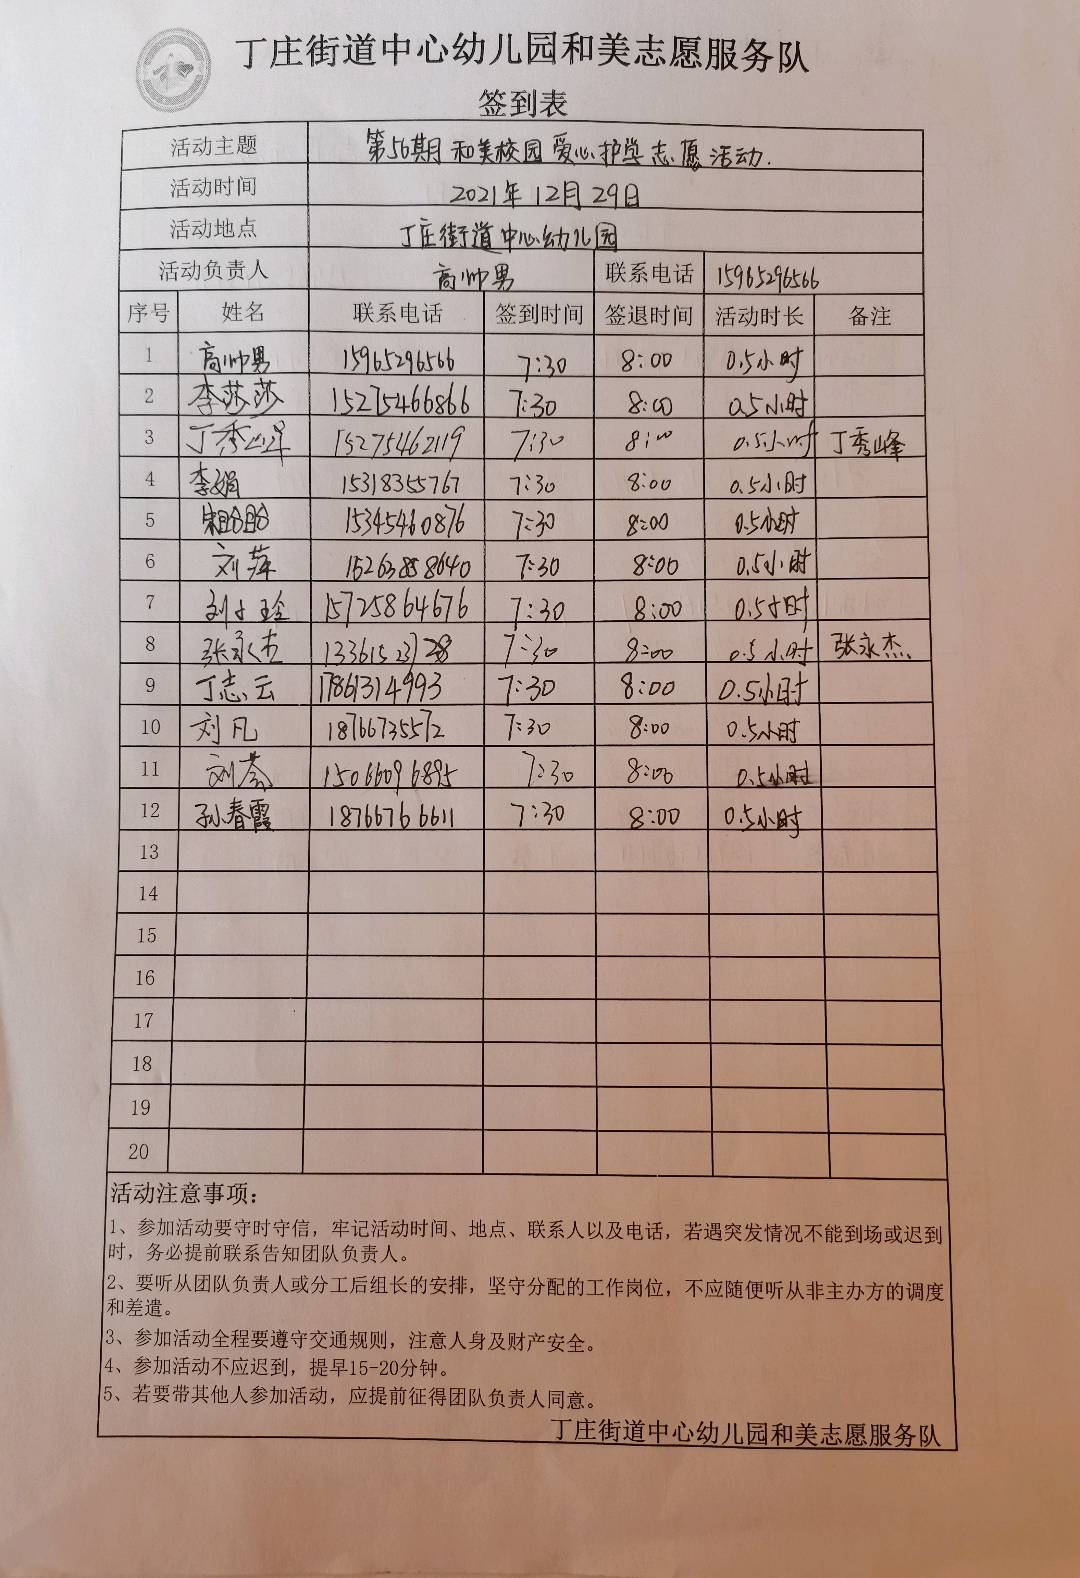 丁庄街道中心幼儿园和美志愿服务队
签到表
活动主题 第56期和美校园爱心护学志愿活动.
活动时间 2021年12月29日
活动地点 丁庄街道中心幼儿园
活动负责人 高帅男 联系电话 15965296566
序号 姓名 联系电话 签到时间 签退时间 活动时长 备注
1 高帅男 15965296566 7:30 8:00 0.5小时
2 李莎莎 15275466866 7:30 8:00 0.5小时
3 丁秀峰 15275462119 7:30 8:00 0.5小时 丁秀峰
4 李娟 15318355767 7:30 8:00 0.5小时
5 15345460876 7:30 8:00 0.5小时
6 刘萍 15263858640 7:30 8:00 0.5小时
7 15725864676 7:30 8:00 0.5小时
8 张永杰 13361523728 7:30 8:00 0.5小时 张永杰
9 丁志云 17861314993 7:30 8:00 0.5小时
10 刘凡 18766735572 7:30 8:00 0.5小时
11 15066096895 7:30 8:00 0.5小时
12 孙春霞 18766766611 7:30 8:00 0.5小时
13
14
15
16
17
18
19
20
活动注意事项：
1、参加活动要守时守信，牢记活动时间、地点、联系人以及电话，若遇突发情况不能到场或迟到
时，务必提前联系告知团队负责人。
2、要听从团队负责人或分工后组长的安排，坚守分配的工作岗位，不应随便听从非主办方的调度
和差遣。
3、参加活动全程要遵守交通规则，注意人身及财产安全。
4、参加活动不应迟到，提早15-20分钟。
5、若要带其他人参加活动，应提前征得团队负责人同意。
丁庄街道中心幼儿园和美志愿服务队